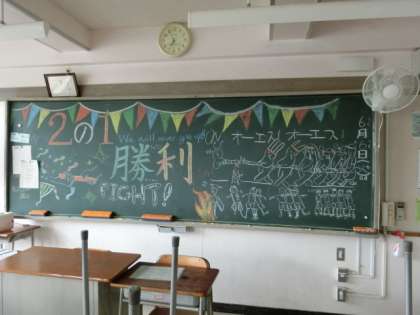 2の1
We will never give up!
勝利
FIGHT!
オーエス!オーエス!
6月6日